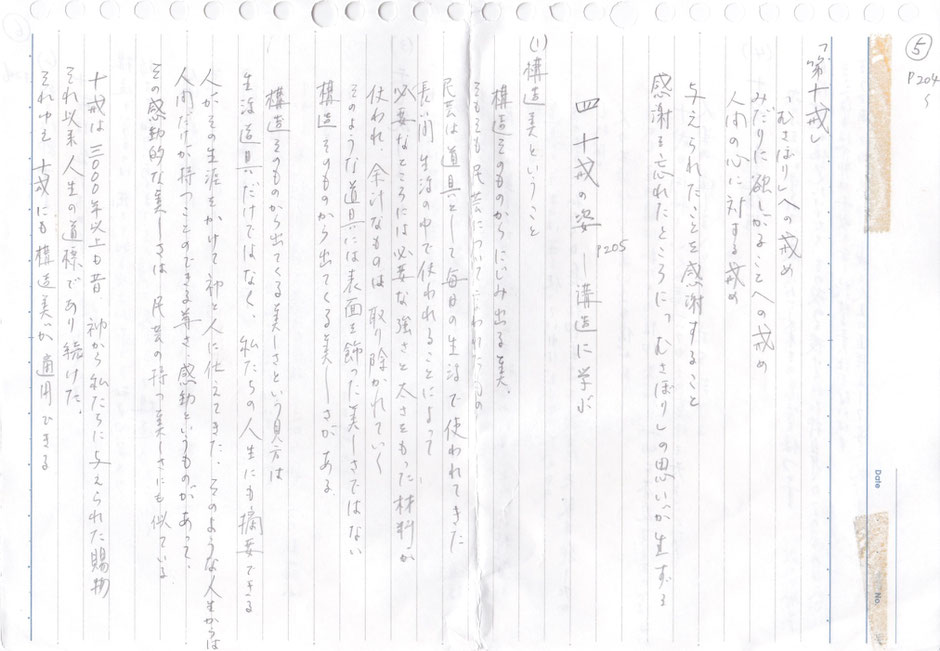 ⑤
P204
「第十戒」
「むさぼり」への戒め
みだりに欲しがることへの戒め
人間の心に対する戒め
与えられたことを感謝すること
感謝を忘れたところに、「むさぼり」の思いが生ずる
四 十戒の姿 ー 構造に学ぶ
P205
(1) 構造美ということ
構造そのものからにじみ出る美、
そもそも民芸について言われた
民芸は道具として毎日の生活で使われてきた
長い間 生活の中で使われることによって
必要なところには必要な強さと太さをもった材料が
使われ、余計なものは取り除かれていく
そのような道具には表面を飾った美しさではない
構造そのものから出てくる美しさがある
構造そのものから出てくる美しさという見方は
生活道具だけではなく、私たちの人生にも摘要できる
人がその生涯をかけて神と人に仕えてきた、そのような人生からは
人間だけが持つことのできる尊さ、感動というものがあって、
その感動的な美しさは民芸の持つ美しさにも似ている
十戒は三〇〇〇年以上も昔、神から私たちに与えられた賜物
それ以来人生の道標であり続けた、
それゆえ 十戒にも構造美が適用できる
Date
No.